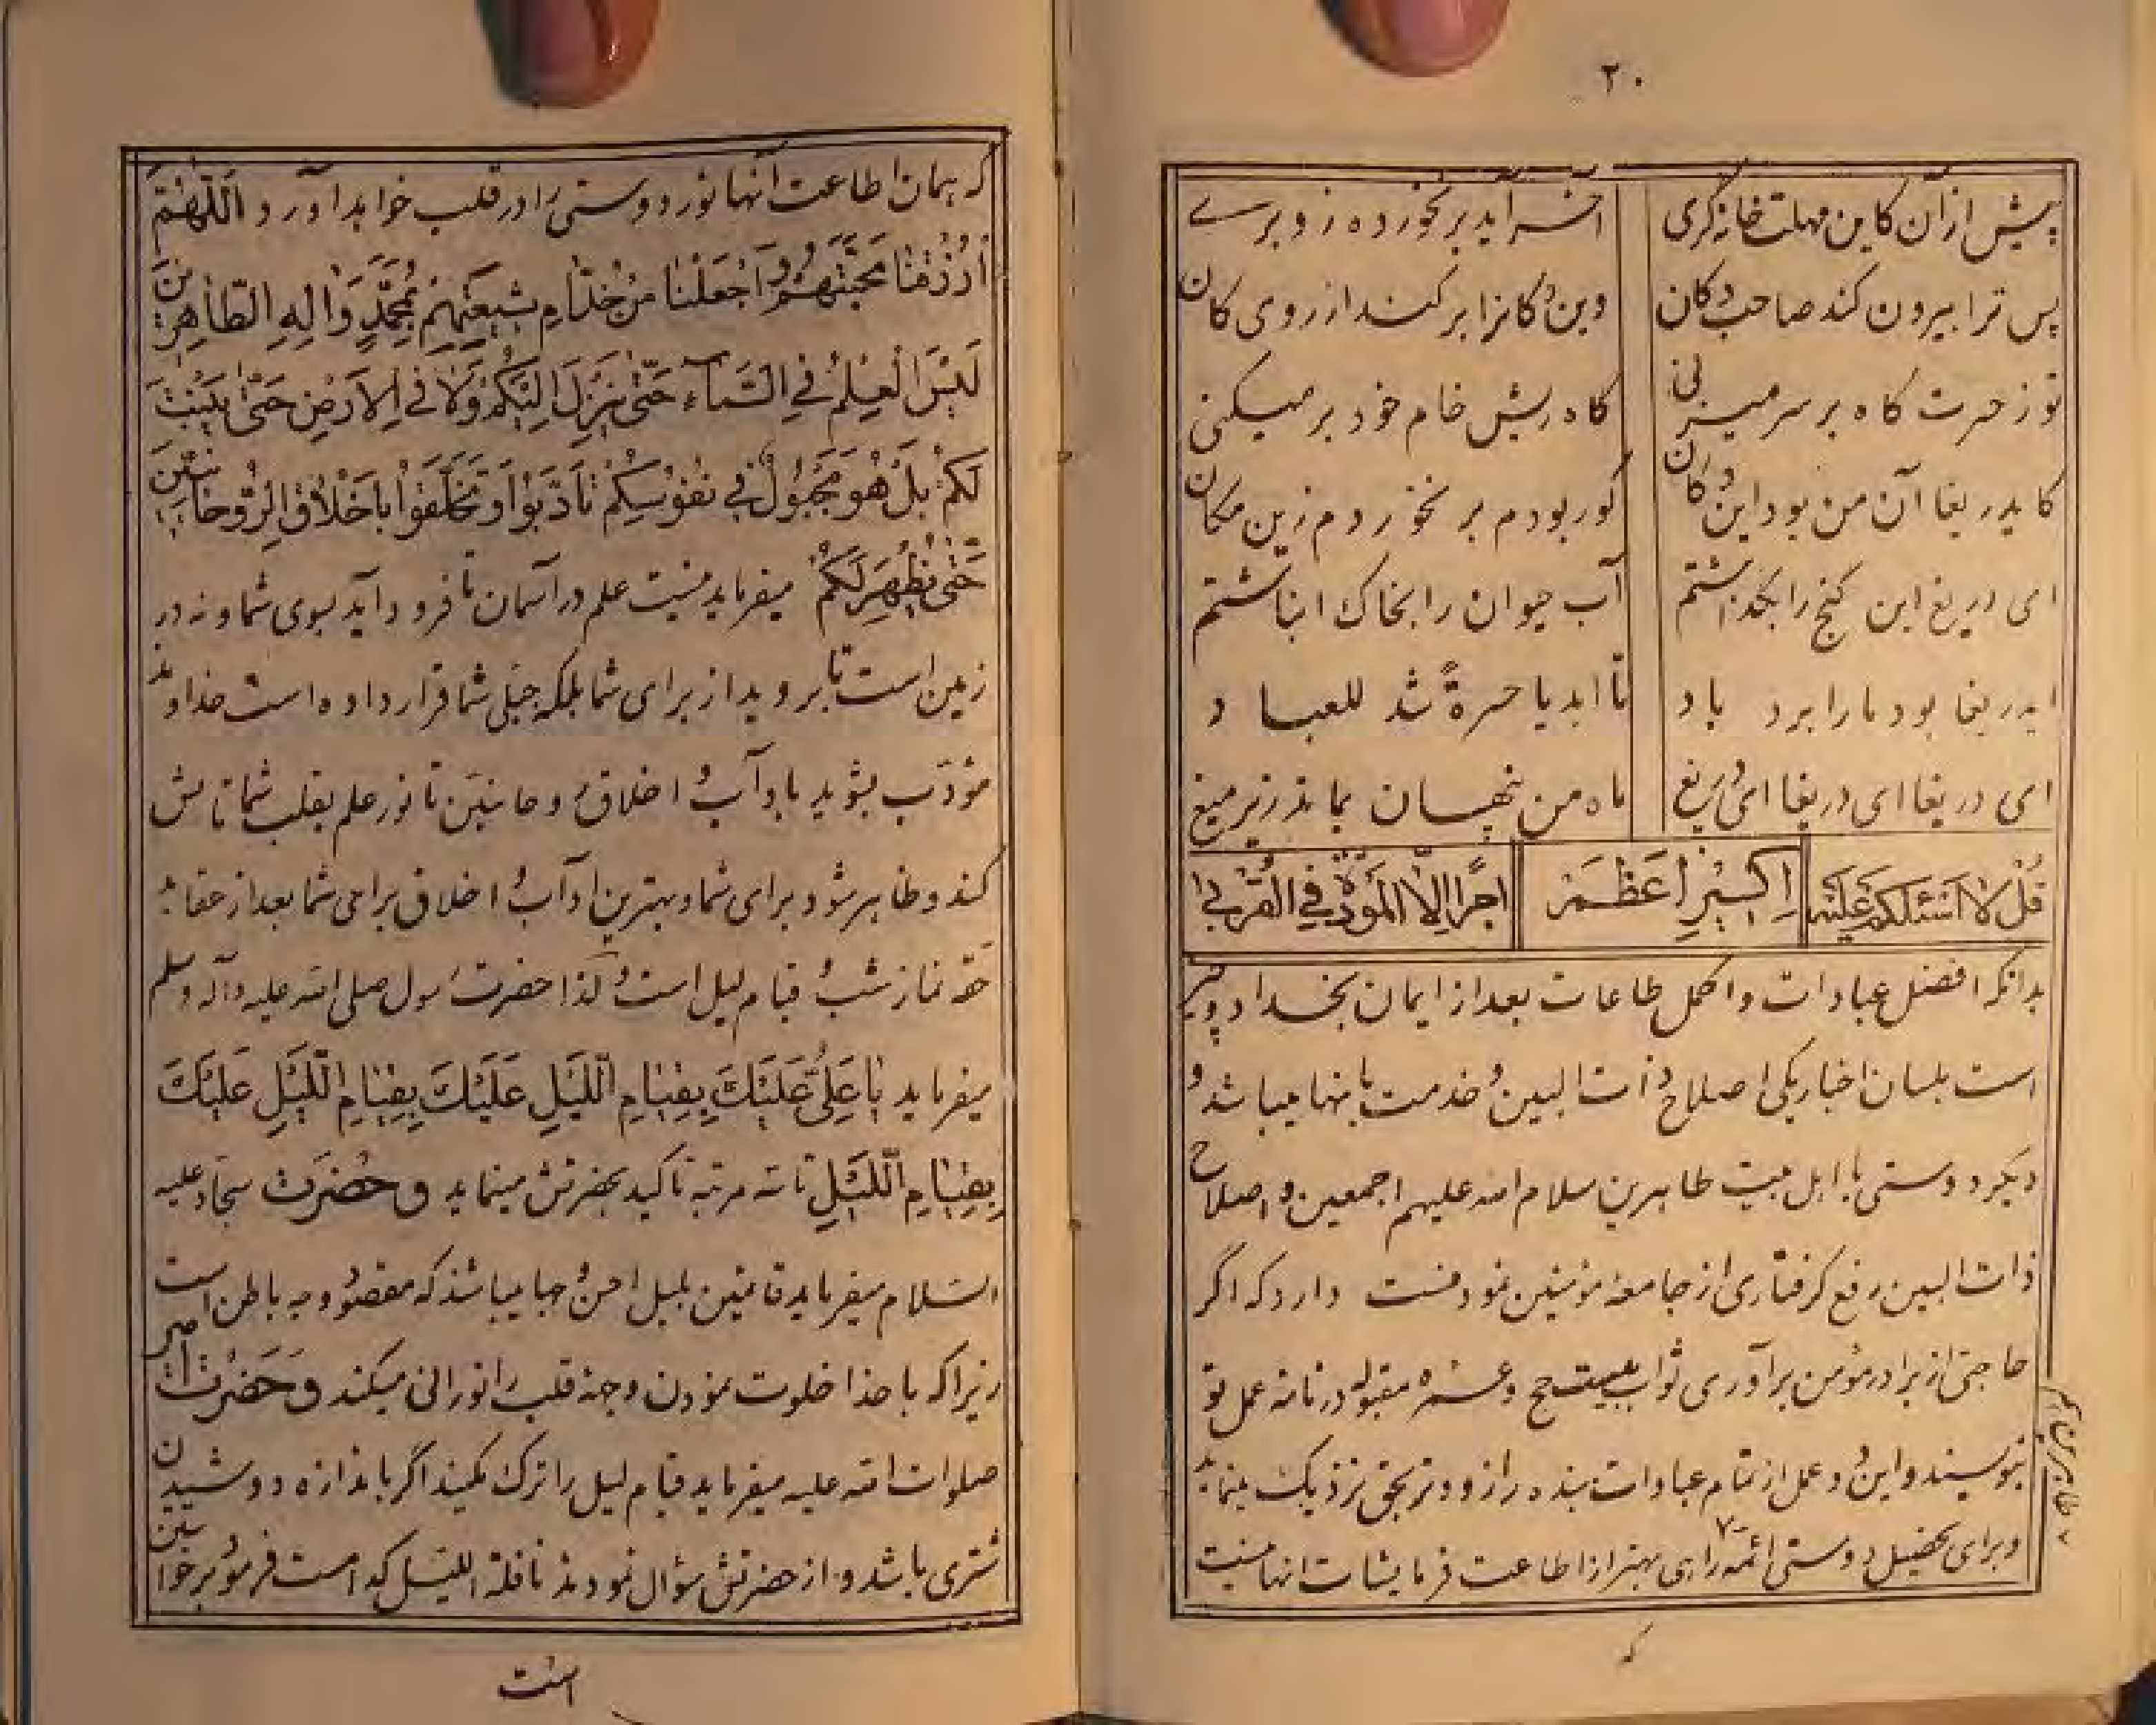 ۲۰
پیش از آن کاین مهلت خانه کری آخر آید بر نخورده زو برے
پس ترا بیرون کند صاحب دکان وین دکانرا بر کند از روی کان
تو ز حسرت کاه بر سر میزنی کاه ریش خام خود بر میکنی
کایدریغا آن من بود این دکان کور بودم بر نخوردم زین مکان
ای دریغ این کنج را بگذاشتم آب حیوان را بخاک انباشتم
ایدریغا بود ما را برد باد تا ابد یا حسرةً شد للعباد
ای دریغا ای دریغا ای دریغ ماه من پنهان بماند زیر میغ
قُلْ لا اَسْئَلُکُمْ عَلَیْهِ اِکسیر اَعْظَمْ اَجْرًا اِلّا الْمَوَدَّةَ فِی الْقُرْبی
بدانکه افضل عبادات و اکمل طاعات بعد از ایمان بخدا دو چیز
است بلسان اخبار یکی اصلاح ذات البین و خدمت بآنها میباشد و
دیکر دوستی با اهل بیت طاهرین سلام الله علیهم اجمعین و اصلاح
ذات البین رفع کرفتاری از جامعه مؤمنین نمودنست دارد که اگر
حاجتی از برادر مؤمن برآوری ثواب بیست حج و عمره مقبوله در نامه عمل تو
بنویسند و این دو عمل از تمام عبادات بنده را زودتر بحق نزدیک مینماید
و برای تحصیل دوستی ائمه راهی بهتر از اطاعت فرمایشات انها نیست
که
که همان اطاعت آنها نور دوستی را در قلب خواهد آورد اَللّهُمَّ
ارْزُقْنا مَحَبَّتَهُمْ وَ اجْعَلْنا مِنْ خُدّامِ شیعَتِهِمْ بِمُحَمَّدٍ وَ الِهِ الطّاهِرینَ
لَیْسَ الْعِلْمُ فِی السَّماءِ حَتّی یَنْزِلَ اِلَیْکُمْ وَ لا فِی الاَرْضِ حَتّی یَنْبُتَ
لَکُمْ بَلْ هُوَ مَجْبُولٌ فی نُفُوسِکُمْ تَأَدَّبُوا وَ تَخَلَّقُوا بِاَخْلاقِ الرُّوحانِیّینَ
حَتّی یَظْهَرَ لَکُمْ میفرماید نیست علم در آسمان تا فرود آید بسوی شما و نه در
زمین است تا بروید از برای شما بلکه جبلی شما قرار داده است خداوند
مؤدب بشوید بآداب و اخلاق روحانیین تا نور علم بقلب شما تابش
کند و ظاهر شود برای شما و بهترین آداب و اخلاق برای شما بعد از عقاید
حقه نماز شب و قیام لیل است و لذا حضرت رسول صلی الله علیه و آله و سلم
میفرماید یا عَلِیُّ عَلَیْکَ بِقِیامِ اللَّیْلِ عَلَیْکَ بِقِیامِ اللَّیْلِ عَلَیْکَ
بِقِیامِ اللَّیْلِ تا سه مرتبه تاکید بحضرتش مینماید و حَضْرَت سجاد علیه
السلام میفرماید قائمین بلیل احسن وجها میباشند که مقصود وجه باطن است
زیرا که با خدا خلوت نمودن وجهه قلب را نورانی میکند و حَضْرَت امیر
صلوات الله علیه میفرماید قیام لیل را ترک نکنید اگر باندازه دوشیدن
شتری باشد و از حضرتش سؤال نمودند نافلة اللیل کدامست فرمود بهترین
است